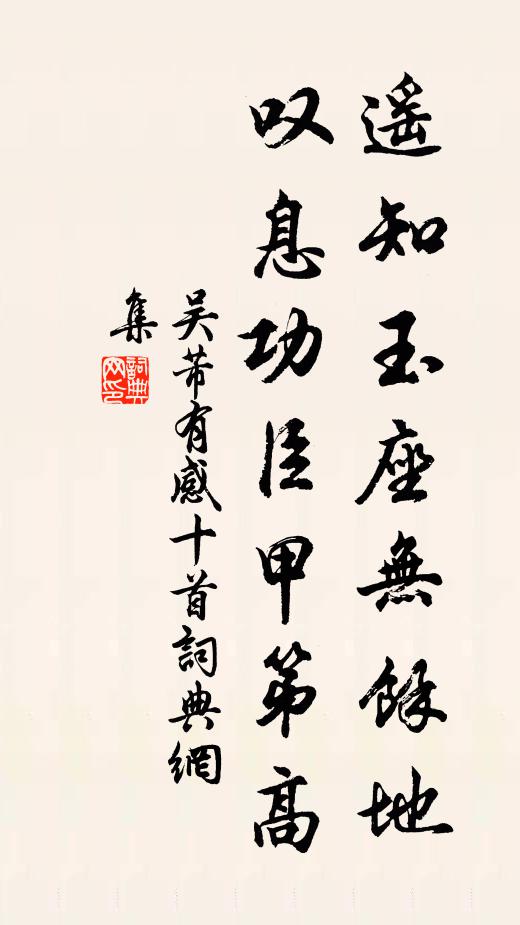 遥知玉座無餘地
叹息功臣甲第高
吴芾有感十首詞典網
集
詞典
网印